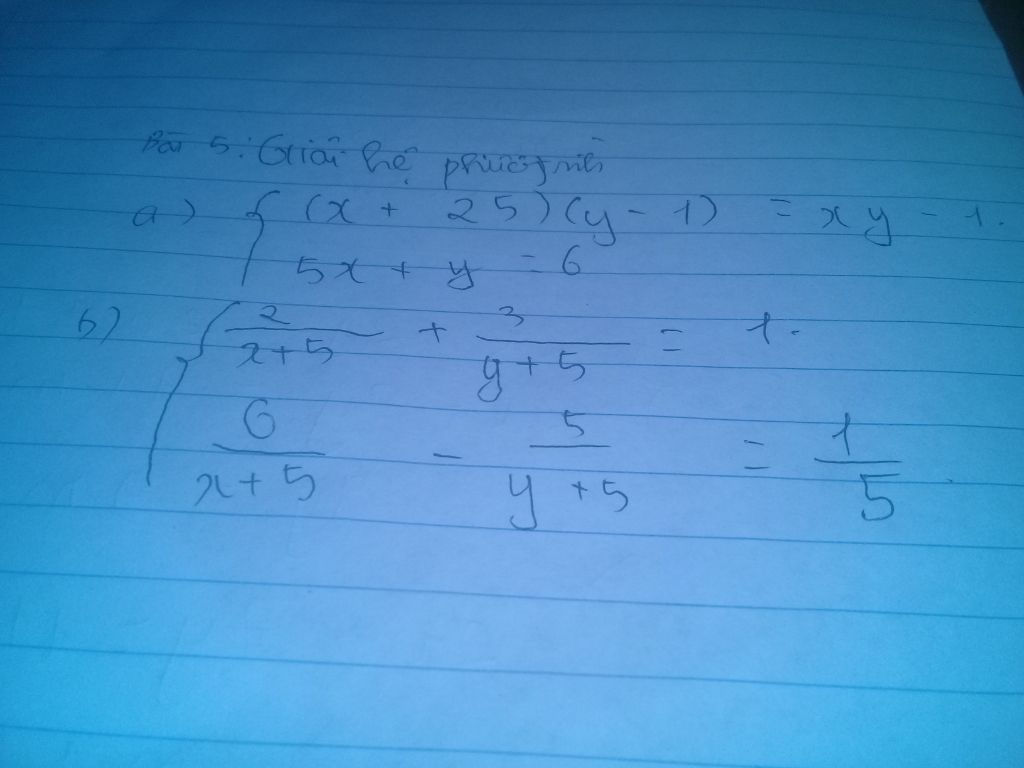 Bài 5: Giải hệ phương trình
a) { (x + 25)(y - 1) = xy - 1.
5x + y = 6
b) { 2/(x+5) + 3/(y+5) = 1.
6/(x+5) - 5/(y+5) = 1/5